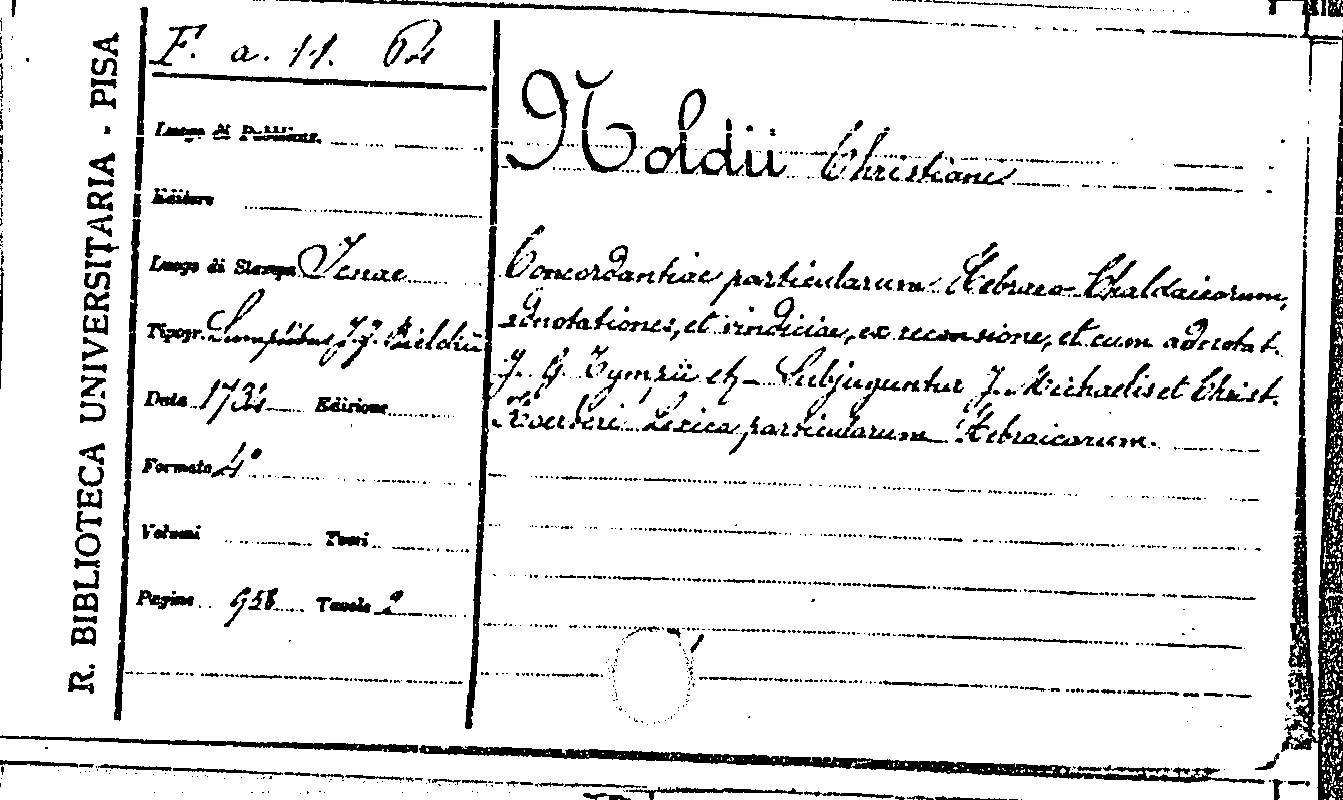 R. BIBLIOTECA UNIVERSITARIA - PISA
F. a. 11.
Luogo di Pubblicaz.
Editore
Luogo di Stampa Jenae
Tipogr. Sumptibus J. F. Bielckii
Data 1734 Edizione
Formato 4°
Volumi Tomi
Pagine 958 Tavole 2
Noldii Christiani
Concordantiae particularum Hebraeo-Chaldaicorum,
adnotationes, et vindiciae, ex recensione, et cum adnotat.
J. G. Tympii etz - Subjuguntur J. Michaelis et Christ.
Koerberi Lexica particularum Hebraicarum.